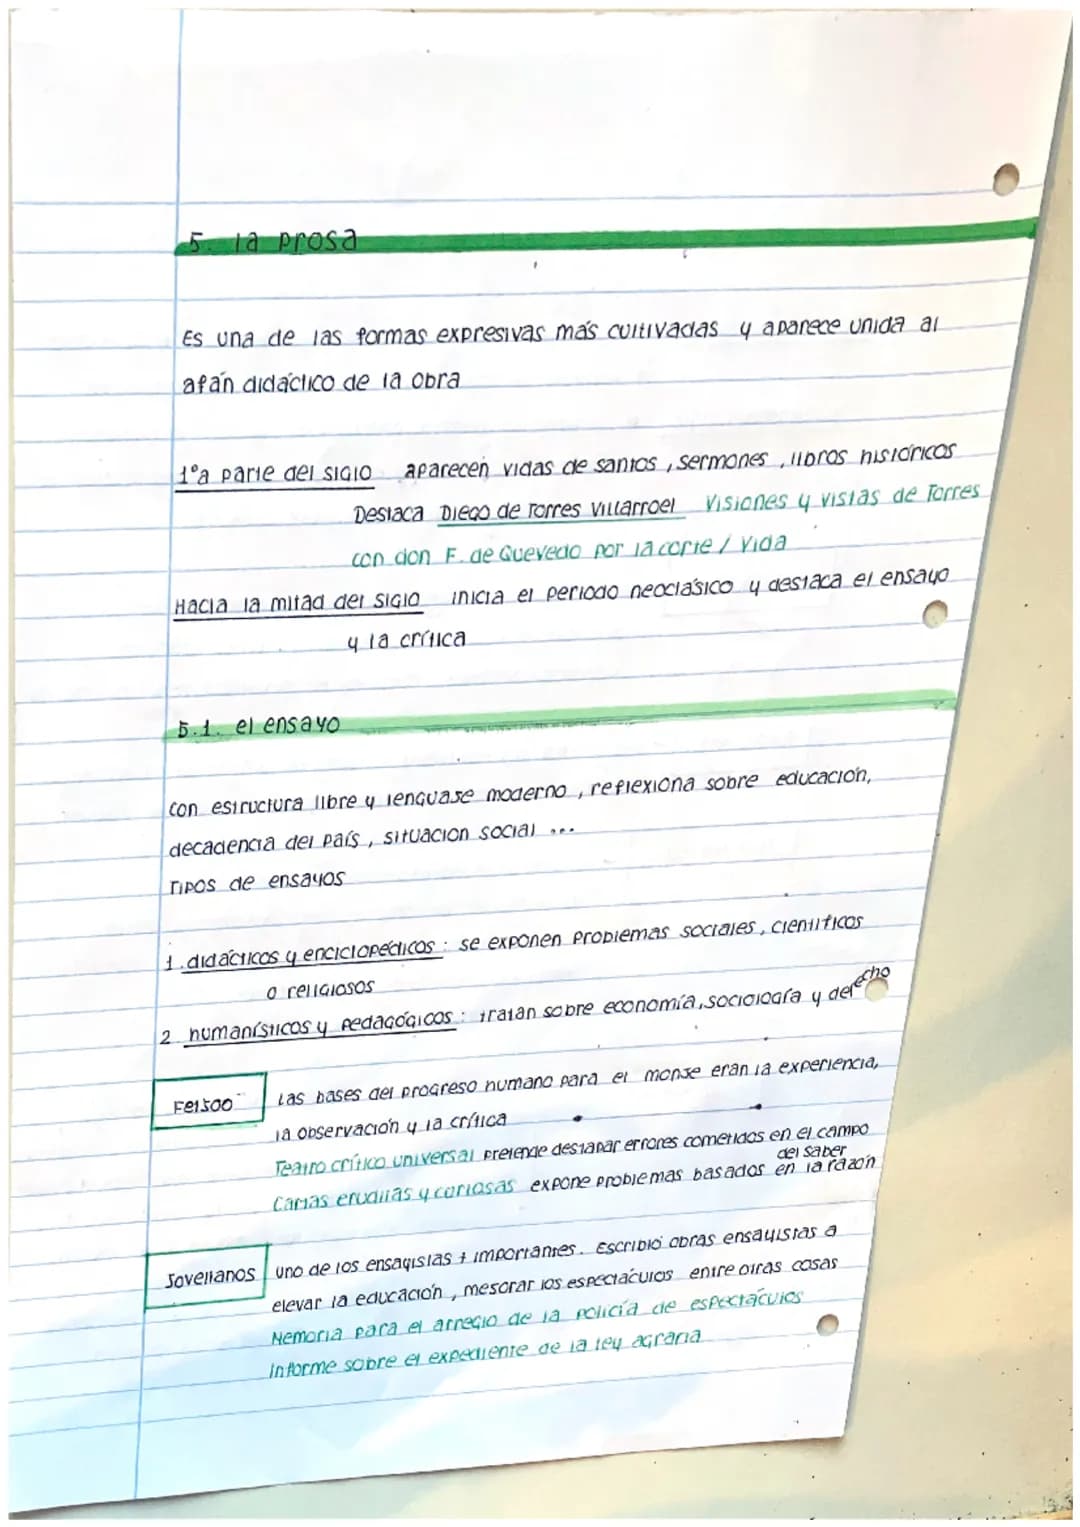 5. la prosa
Es una de las formas expresivas más cultivadas y aparece unida al
afán didáctico de la obra
1ºa parte del siglo aparecen vidas de santos, sermones, libros históricos
Destaca Diego de Torres Villarroel Visiones y vistas de Torres
con don F. de Quevedo por la corte / Vida
Hacia la mitad del siglo inicia el periodo neoclásico y destaca el ensayo
y la crítica
5.1. el ensayo
con estructura libre y lenguaje moderno, reflexiona sobre educación,
decadencia del país, situacion social ...
Tipos de ensayos
1. didácticos y enciclopédicos: se exponen problemas sociales, científicos
o religiosos
2 humanísticos y pedagógicos: tratan sobre economía, sociología y derecho
Feijoo las bases del progreso humano para el monje eran la experiencia,
la observación y la crítica
Teatro crítico universal pretende destapar errores cometidos en el campo
del saber
Cartas eruditas y coriosas expone problemas basados en la razón
Jovellanos uno de los ensayistas + importantes. Escribió obras ensayistas a
elevar la educación, mejorar los espectáculos entre otras cosas
Memoria para el arreglo de la policía de espectáculos
Informe sobre el expediente de la ley agraria